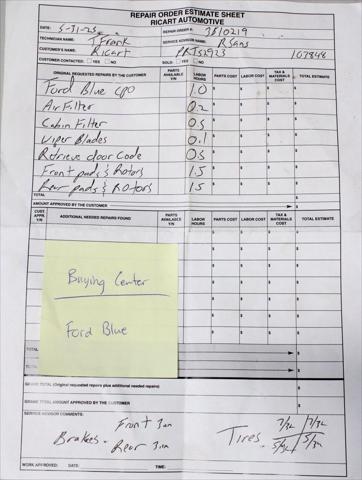 REPAIR ORDER ESTIMATE SHEET
RICART AUTOMOTIVE
DATE: 5-31-25 REPAIR ORDER #: 3510219
TECHNICIAN NAME: T Frank SERVICE ADVISOR NAME: R Sans
CUSTOMER'S NAME: Ricart PRTS2923 107848
CUSTOMER CONTACTED: YES NO SOLD: YES NO
ORIGINAL REQUESTED REPAIRS BY THE CUSTOMER PARTS AVAILABLE Y/N LABOR HOURS PARTS COST LABOR COST TAX & MATERIALS COST TOTAL ESTIMATE
Ford Blue CPO 1.0 $ $ $ $
Air Filter 0.2 $ $ $ $
Cabin Filter 0.5 $ $ $ $
Wiper Blades 0.1 $ $ $ $
Retrieve door Code 0.5 $ $ $ $
Front pads & Rotors 1.5 $ $ $ $
Rear pads & Rotors 1.5 $ $ $ $
TOTAL $
AMOUNT APPROVED BY THE CUSTOMER $
CUST. APPR. Y/N ADDITIONAL NEEDED REPAIRS FOUND PARTS AVAILABLE Y/N LABOR HOURS PARTS COST LABOR COST TAX & MATERIALS COST TOTAL ESTIMATE
Buying Center
Ford Blue
TOTAL
TOTAL
GRAND TOTAL (Original requested repairs plus additional needed repairs) $
GRAND TOTAL AMOUNT APPROVED BY THE CUSTOMER $
SERVICE ADVISOR COMMENTS:
Brakes - Front 3mm
Rear 3mm
Tires - 7/32 7/32
5/32 5/32
WORK APPROVED: DATE: TIME: